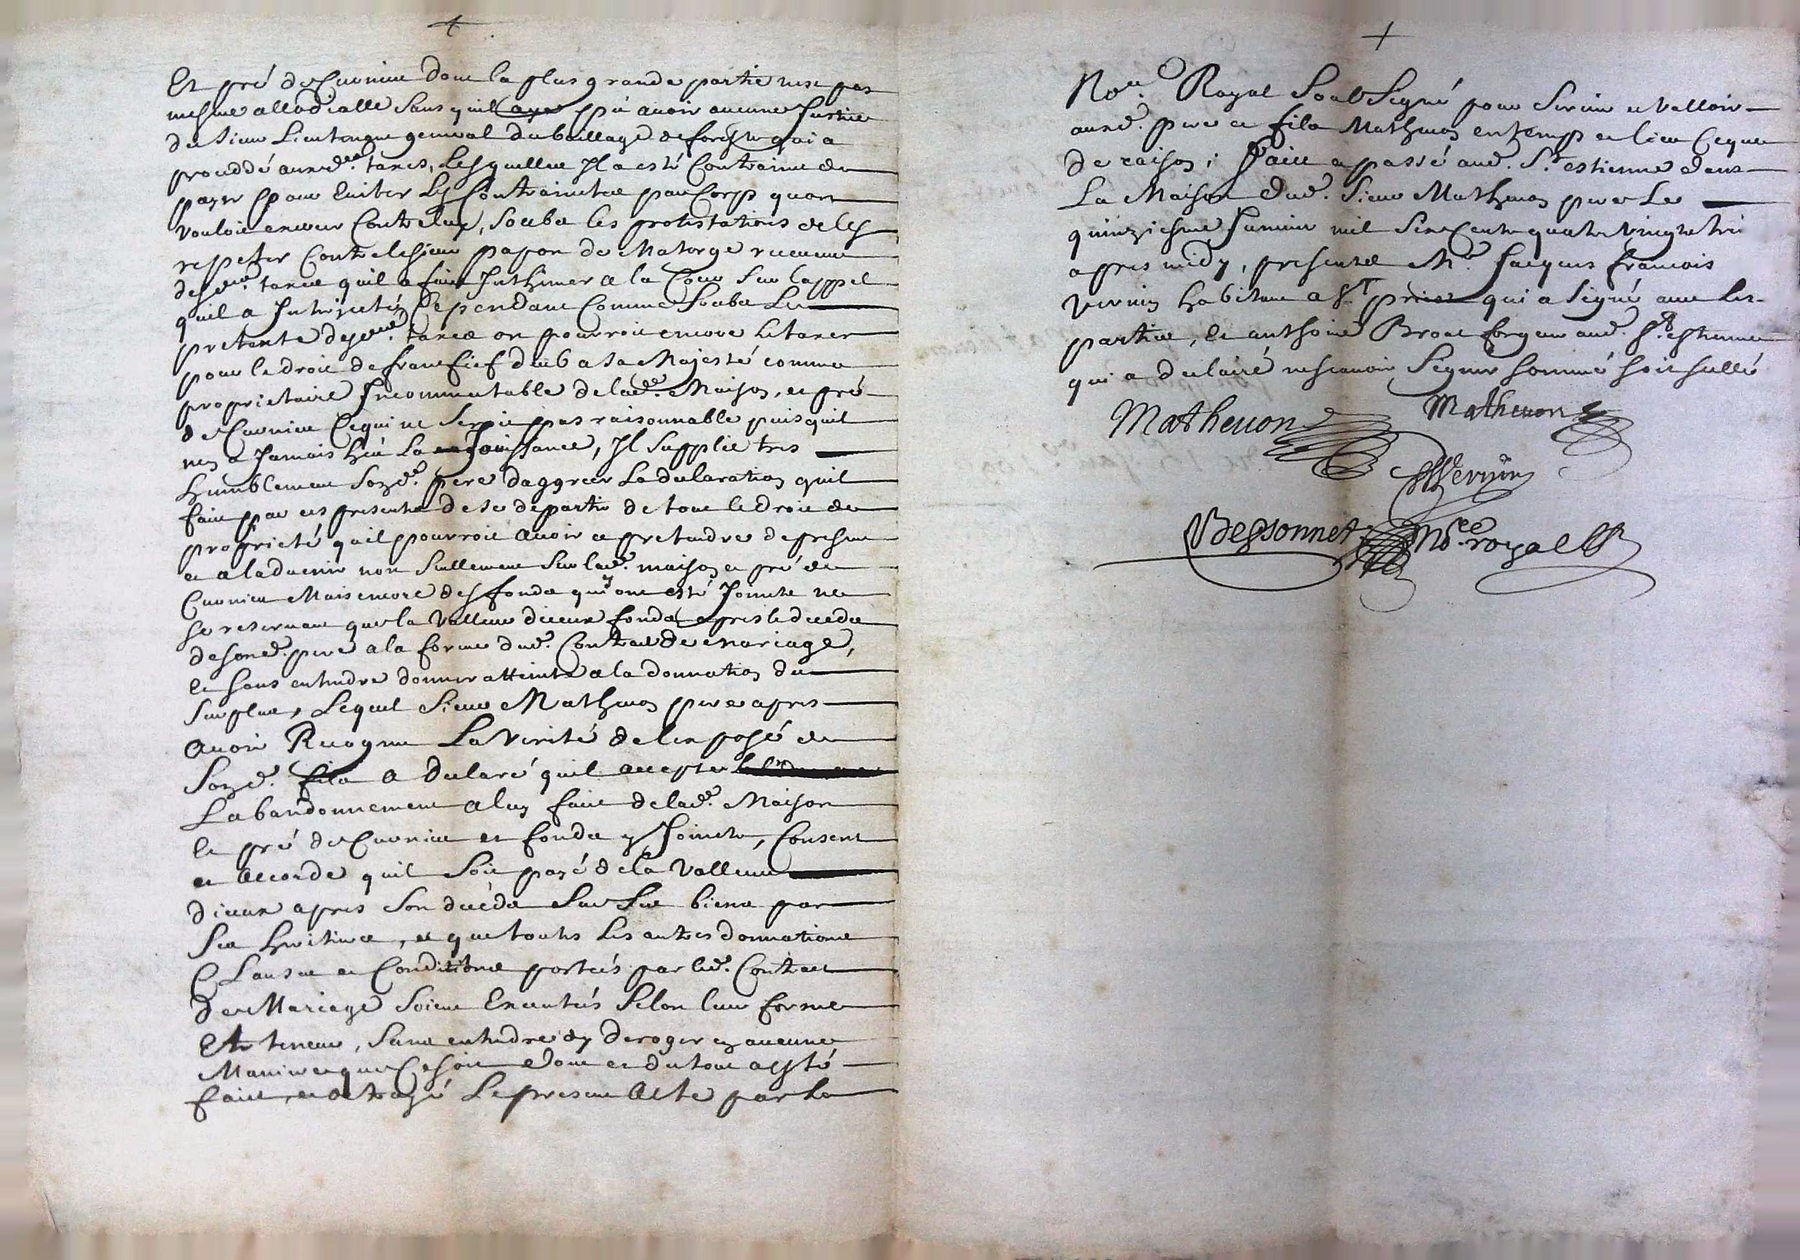 Et pré de Cuonieu dont la plus grande partie nest pas
mesme allodialle sans quil aye pû avoir aucune Justice
du sieur Lieutenant general du baillage de forestz qui a
proceddé auxd. taxes, Lesquelles Il a esté Contrainct de
payer pour Eviter les Contrainctes par Corps quon
vouloit exercer Contre luy, soubs les protestations de les
repeter Contre le sieur papon de Matorge receveur
desd. taxes quil a faict Inthimer a la Cour sur lappel
quil a Interjecté, Cependant Comme soubs Le
pretexte desd. taxes on pourroit encore le taxer
pour le droit de franc fief deub a sa Majesté comme
proprietaire Incommutable de lad. Maison, et pré
de Cuonieu Ce qui ne seroit pas raisonnable puis quil
nen a Jamais heu La Jouissance, Il supplie tres
humblement sond. pere daggreer La declaration quil
faict par ces presentes de se departir de tout le droit de
proprieté quil pourroit avoir et pretendre de present
et a ladvenir non seullement sur lad. maison et pré de
Cuonieu Mais encore des fonds qui y ont esté Joincts ne
se reservant que la Valleur diceux fonds apres le decedz
de son d. pere a la forme dud. Contract de mariage,
et sans entendre donner atteinte a la donnation du
surplus, Lequel sieur Mathevon pere apres
avoir Recogneu La Verité de lexposé de
sond. fils a declaré quil accepte
Labandonnement a luy faict de lad. Maison
et pré de Cuonieu et fonds y Joincts, Consent
et accorde quil soit payé de la Valleur
diceux apres son decéds sur ses biens par
ses heritiers, et que toutes les autres donnations
Clauses et Conditions portées par led. Contract
de Mariage soient Executées selon leur forme
Et teneur, sans entendre y deroger en aucune
Maniere que Ce soit dont et du tout a esté
faict et octroyé Le present acte par Le
Nore. Royal soubsigné pour servir et valloir
auxd. pere et fils Mathevon en temps et lieu Ce que
de raison; faict et passé aud. St. estienne dans
La Maison dud. sieur Mathevon pere Le
quinziesme Janvier mil six Cent quatre vingts trei
apres midy, presents Me. Jacques francois
vernin habitant a St. priest qui a signé avec les
parties, et anthoine forgeur aud. St. estienne
qui a declairé ne scavoir signer sommé soit sellé
Mathevon Mathevon
Vernin
Bessonnet Nore. royal